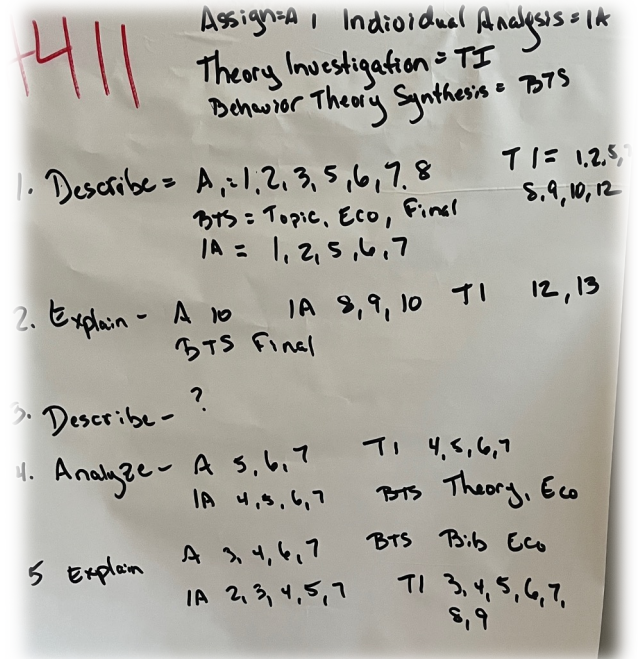 411
Assign=A, Individual Analysis = IA
Theory Investigation = TI
Behavior Theory Synthesis = BTS
1. Describe = A,= 1,2,3,5,6,7.8 TI = 1.2,5,
BTS = Topic, Eco, Final 8,9,10,12
IA = 1,2,5,6,7
2. Explain - A 10 IA 8,9,10 TI 12,13
BTS Final
3. Describe - ?
4. Analyze - A 5,6,7 TI 4,5,6,7
IA 4,5,6,7 BTS Theory, Eco
5 Explain A 3,4,6,7 BTS Bib Eco
IA 2,3,4,5,7 TI 3,4,5,6,7,
8,9